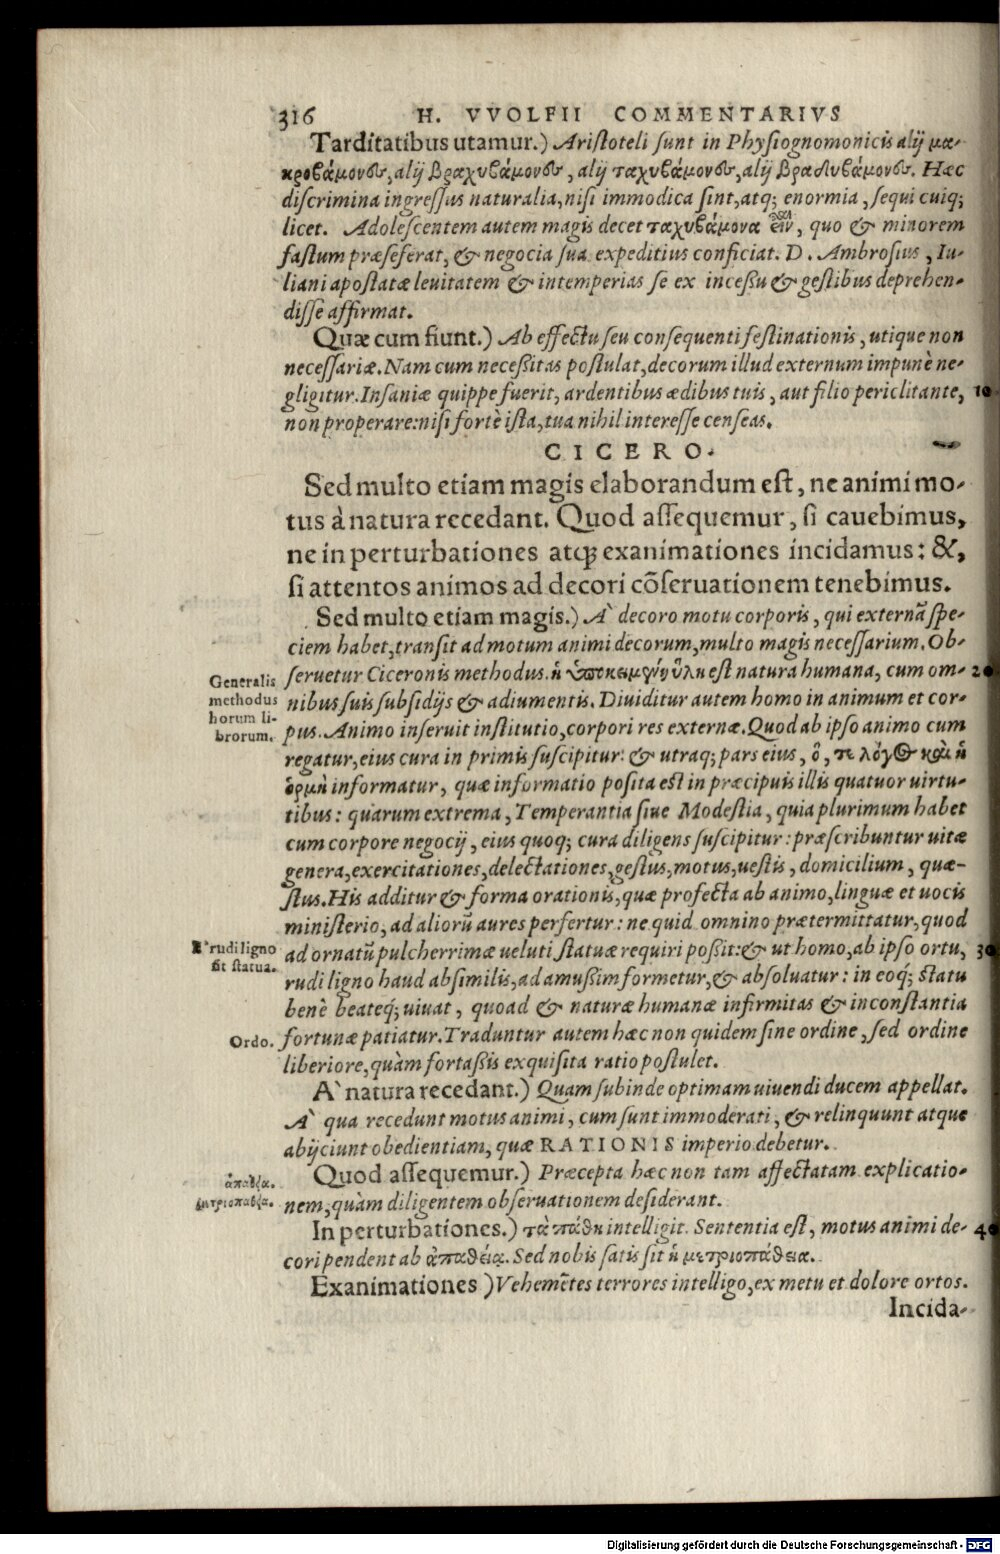 316 H. VVOLFII COMMENTARIVS
Tarditatibus utamur.) Aristoteli sunt in Physiognomonicis alij μα-
κροβάμονες, alij βραχυβάμονες, alij ταχυβάμονες, alij βραδυβάμονες. Hæc
discrimina ingressus naturalia, nisi immodica sint, atq; enormia, sequi cuiq;
licet. Adolescentem autem magis decet ταχυβάμονα εἶναι, quo & minorem
fastum præseferat, & negocia sua expeditius conficiat. D. Ambrosius, Iu-
liani apostatæ leuitatem & intemperias se ex incessu & gestibus deprehen-
disse affirmat.
Quæ cum fiunt.) Ab effectu seu consequenti festinationis, utique non
necessariæ. Nam cum necessitas postulat, decorum illud externum impunè ne-
gligitur. Insaniæ quippe fuerit, ardentibus ædibus tuis, aut filio periclitante, 10
non properare: nisi fortè ista, tua nihil interesse censeas.
CICERO.
Sed multo etiam magis elaborandum est, ne animi mo-
tus à natura recedant. Quod assequemur, si cauebimus,
ne in perturbationes atq; exanimationes incidamus: &,
si attentos animos ad decori cōseruationem tenebimus.
Sed multo etiam magis.) A` decoro motu corporis, qui externā spe-
ciem habet, transit ad motum animi decorum, multo magis necessarium. Ob-
seruetur Ciceronis methodus. ἡ ὑποκειμένη ὕλη est natura humana, cum om- 20
Generalis
methodus
horum li-
brorum.
nibus suis subsidijs & adiumentis. Diuiditur autem homo in animum et cor-
pus. Animo inseruit institutio, corpori res externæ. Quod ab ipso animo cum
regatur, eius cura in primis suscipitur: & utraq; pars eius, ὅ, τε λόγος καὶ ἡ
ὁρμὴ informatur, quæ informatio posita est in præcipuis illis quatuor uirtu-
tibus: quarum extrema, Temperantia siue Modestia, quia plurimum habet
cum corpore negocij, eius quoq; cura diligens suscipitur: præscribuntur uitæ
genera, exercitationes, delectationes, gestus, motus, uestis, domicilium, quæ-
stus. His additur & forma orationis, quæ profecta ab animo, linguæ et uocis
ministerio, ad aliorū aures perfertur: ne quid omnino prætermittatur, quod
E` rudi ligno
fit statua.
ad ornatū pulcherrimæ ueluti statuæ requiri possit: & ut homo, ab ipso ortu, 30
rudi ligno haud absimilis, ad amussim formetur, & absoluatur: in eoq; statu
benè beateq; uiuat, quoad & naturæ humanæ infirmitas & inconstantia
Ordo.
fortunæ patiatur. Traduntur autem hæc non quidem sine ordine, sed ordine
liberiore, quàm fortassis exquisita ratio postulet.
A` natura recedant.) Quam subinde optimam uiuendi ducem appellat.
A` qua recedunt motus animi, cum sunt immoderati, & relinquunt atque
abijciunt obedientiam, quæ RATIONIS imperio debetur.
Quod assequemur.) Præcepta hæc non tam affectatam explicatio-
ἀπάθεια.
μετριοπάθεια.
nem, quàm diligentem obseruationem desiderant.
In perturbationes.) τὰ πάθη intelligit. Sententia est, motus animi de- 40
cori pendent ab ἀπαθείᾳ. Sed nobis satis sit ἡ μετριοπάθεια.
Exanimationes) Vehemētes terrores intelligo, ex metu et dolore ortos.
Incida-
Digitalisierung gefördert durch die Deutsche Forschungsgemeinschaft - DFG